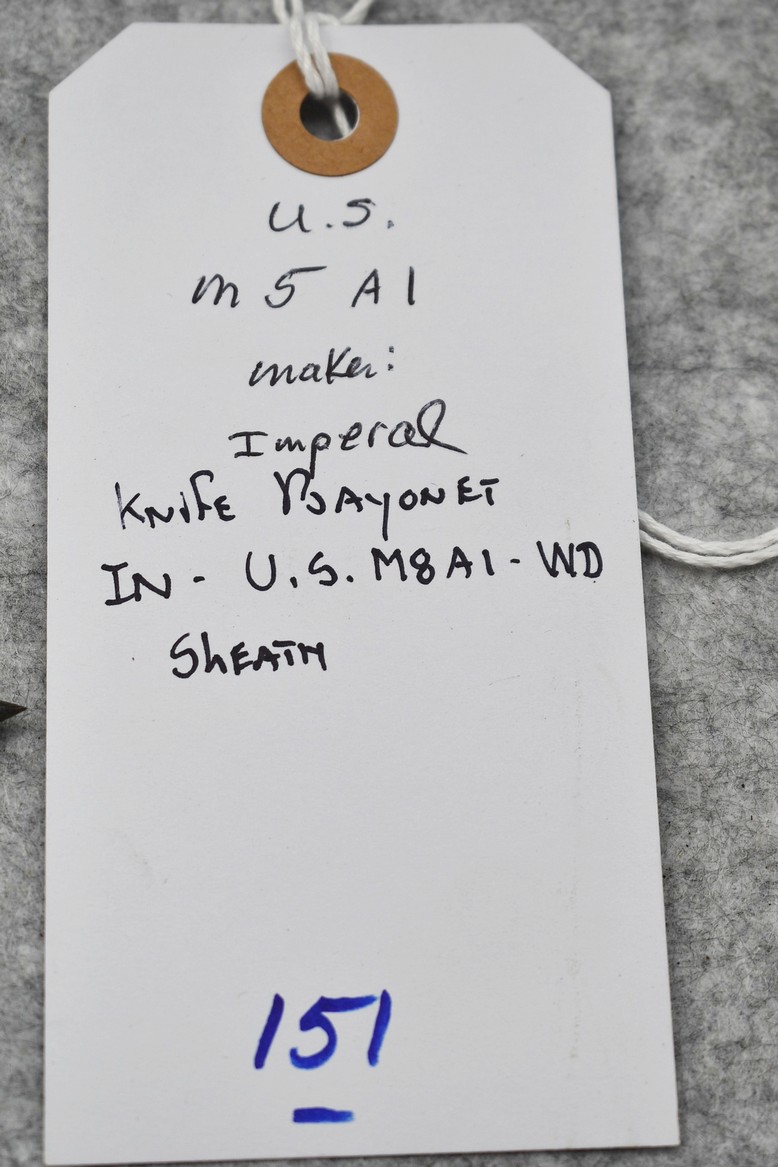 U.S.
M 5 A 1
maker:
Imperal
Knife Bayonet
IN - U.S. M8A1 - WD
Sheath
151